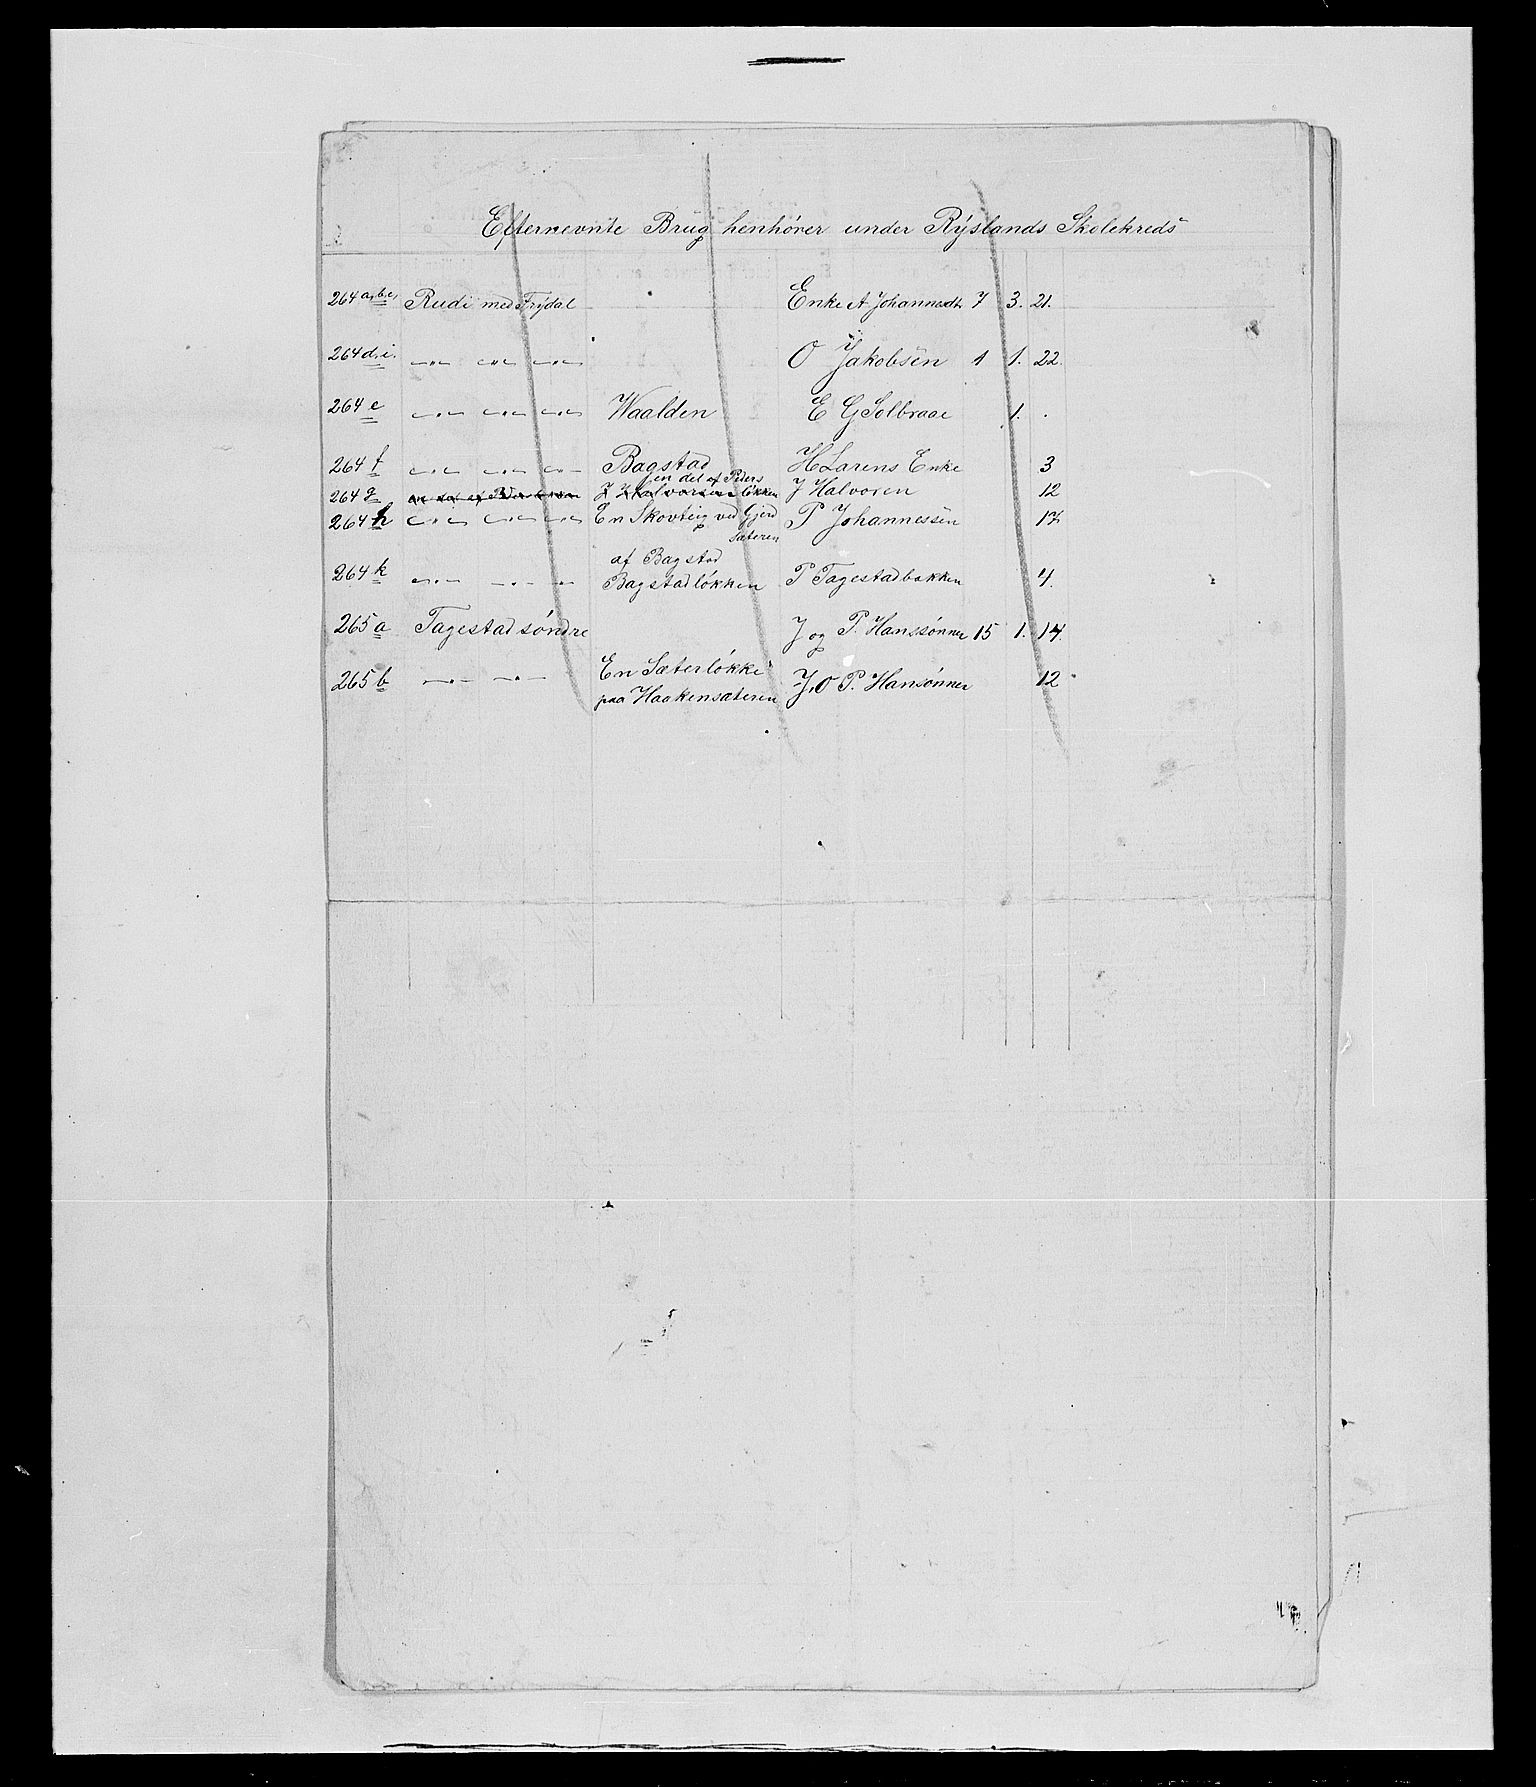 Efternevnte Brug henhører under Ryslands Skolekreds
264 a,b,c, Rudi med Frydal Enke A Johannesdt. 7 3. 21.
264 d. i. —〃— —〃— —〃— O Jakobsen 1 1. 22.
264 e —〃— —〃— —〃— Waalden E G Solbraae 1. .
264 f —〃— —〃— —〃— Bagstad H Larens Enke 3
en del af Peders
264 g J Halvorsens løkken J Halvorsen 12
264 h —〃— —〃— —〃— En Skovteig ved Gjerd P Johannessen 17
sæteren
af Bagstad
264 k —〃— —〃— —〃— Bagstadløkken P Tagestadbakken 4.
265 a Tagestad søndre J og P. Hanssønner 15 1. 14.
En Sæterløkke
265 b —〃— —〃— J. O P. Hansønner 12
paa Haakensæteren